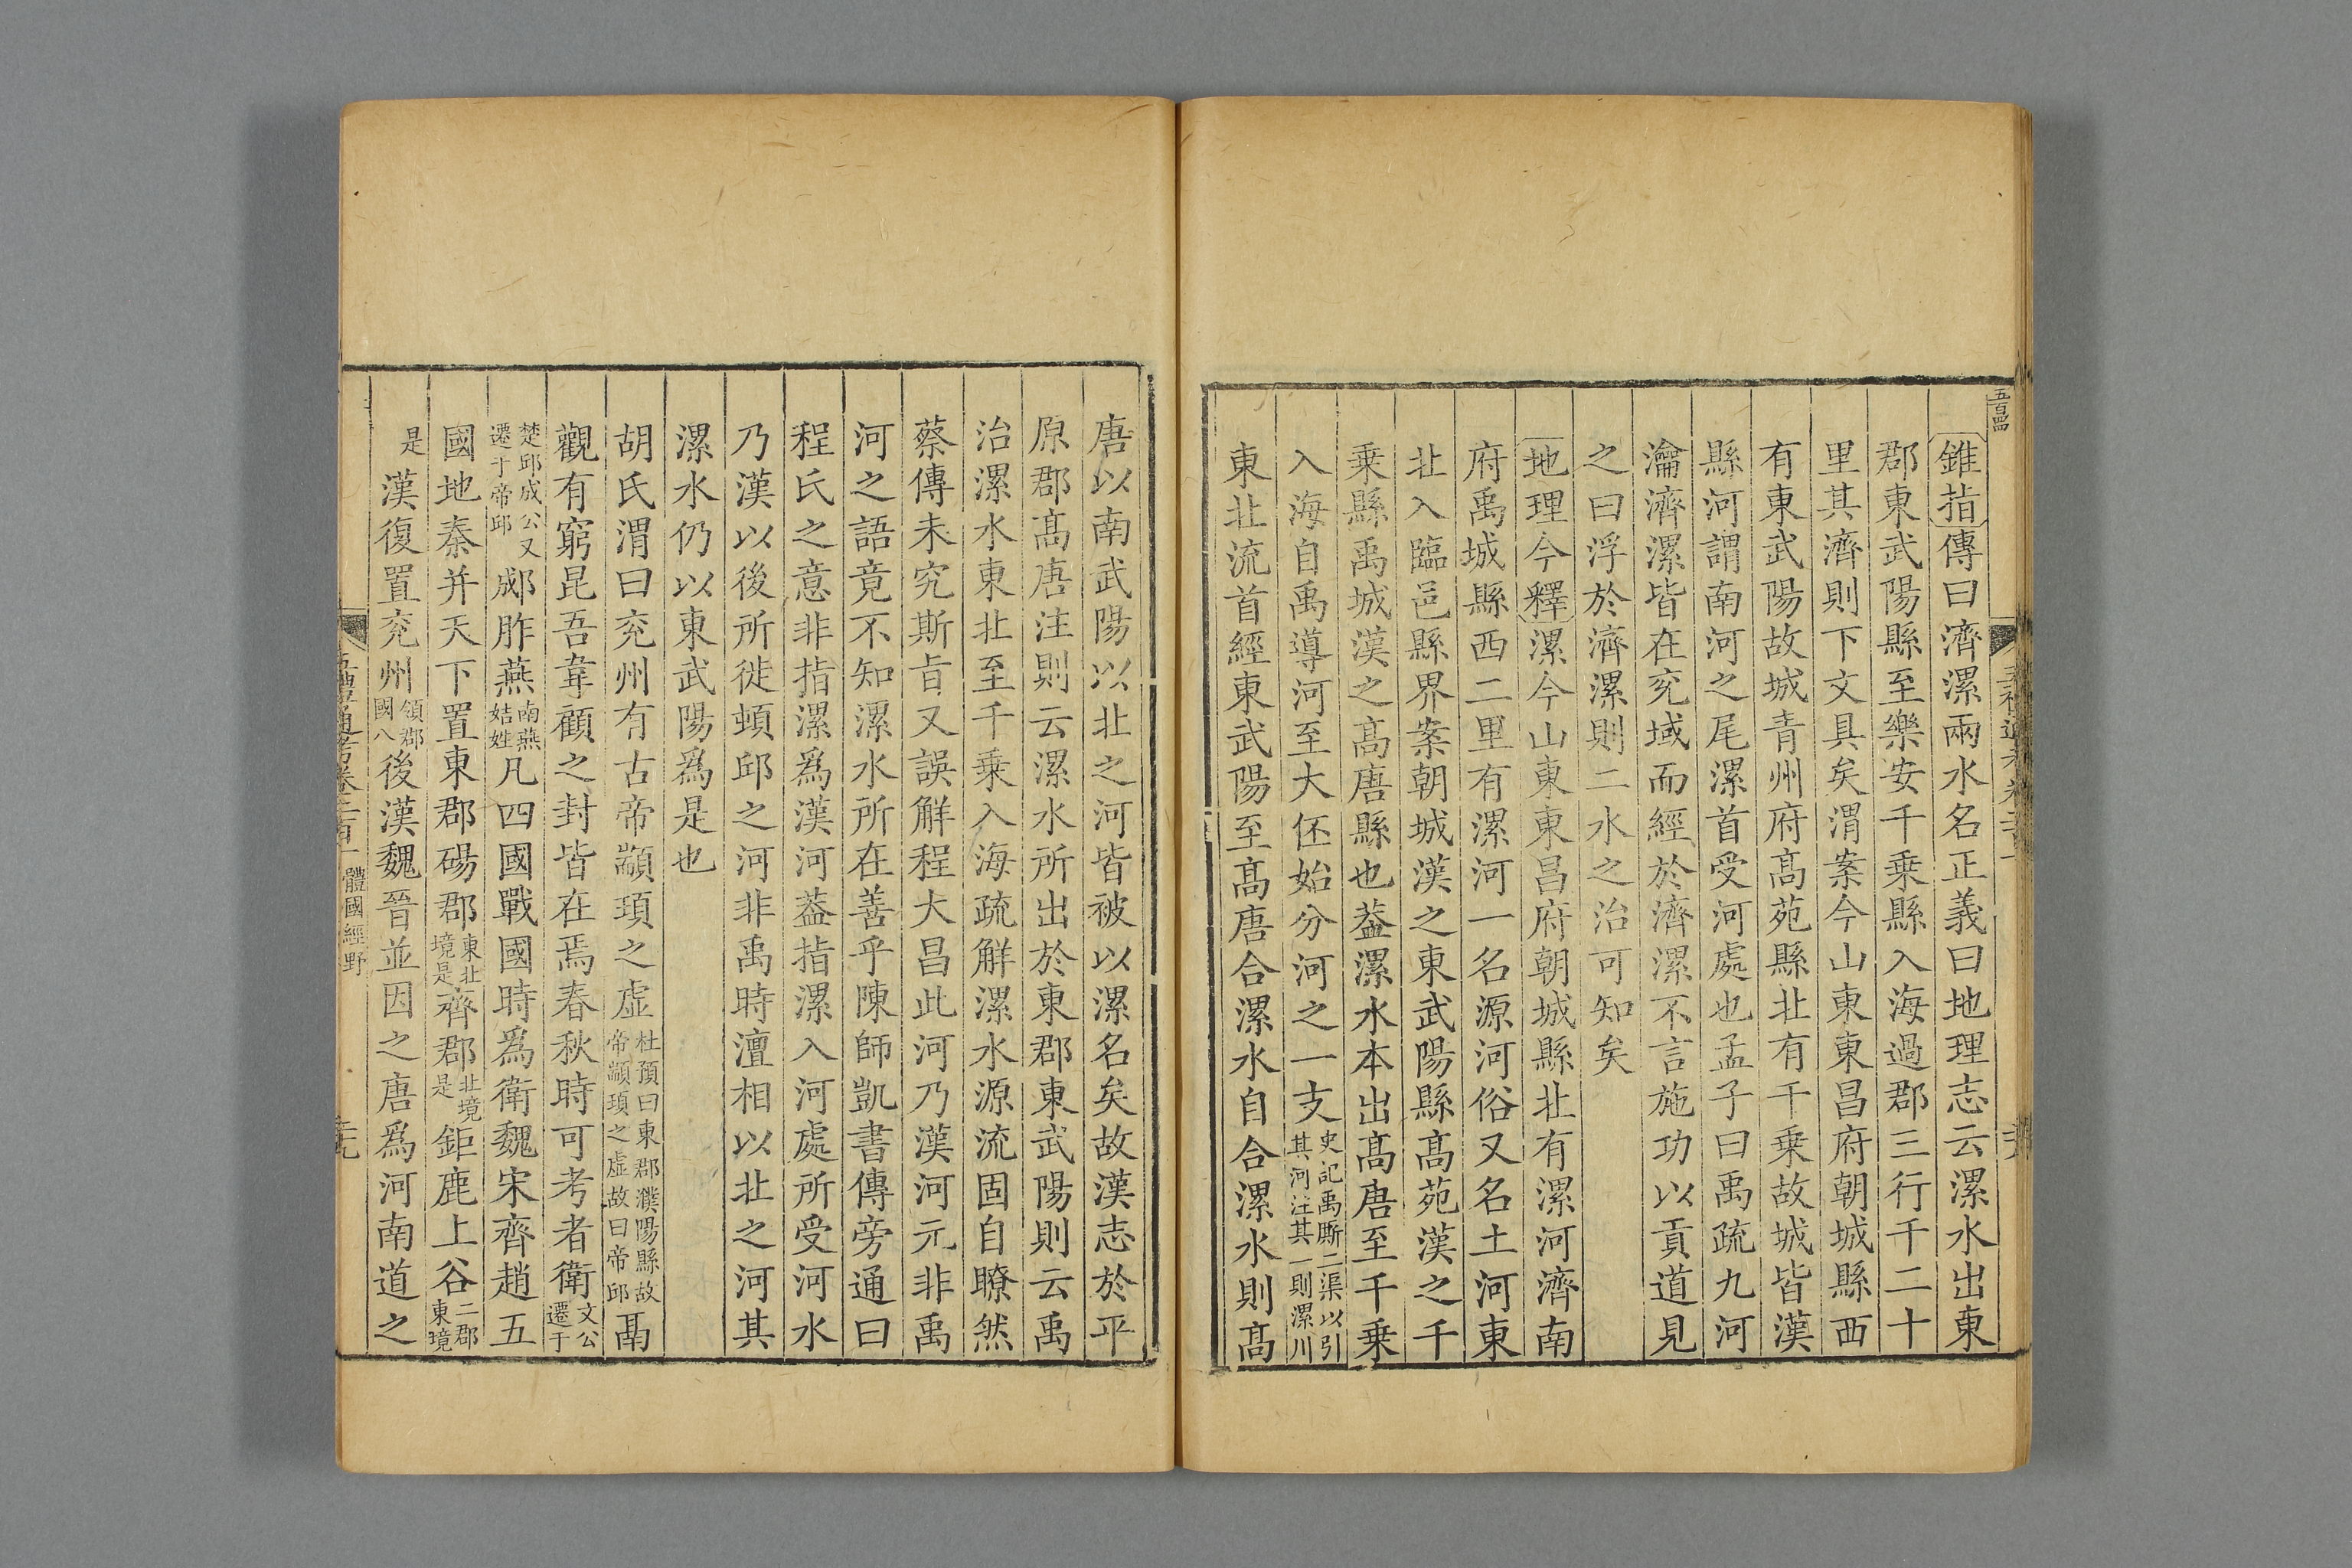 五百四
錐指傳曰濟漯兩水名正義曰地理志云漯水出東
郡東武陽縣至樂安千乗縣入海過郡三行千二十
里其濟則下文具矣渭案今山東東昌府朝城縣西
有東武陽故城青州府髙苑縣北有千乗故城皆漢
縣河謂南河之尾漯首受河處也孟子曰禹疏九河
瀹濟漯皆在兖域而經於濟漯不言施功以貢道見
之曰浮於濟漯則二水之治可知矣
地理今釋漯今山東東昌府朝城縣北有漯河濟南
府禹城縣西二里有漯河一名源河俗又名土河東
北入臨邑縣界案朝城漢之東武陽縣髙苑漢之千
乗縣禹城漢之髙唐縣也葢漯水本出髙唐至千乗
入海自禹導河至大伾始分河之一支史記禹厮二渠以引其河注其一則漯川
東北流首經東武陽至髙唐合漯水自合漯水則髙
唐以南武陽以北之河皆被以漯名矣故漢志於平
原郡髙唐注則云漯水所出於東郡東武陽則云禹
治漯水東北至千乗入海疏解漯水源流固自瞭然
蔡傳未究斯㫖又誤解程大昌此河乃漢河元非禹
河之語竟不知漯水所在善乎陳師凱書傳旁通曰
程氏之意非指漯爲漢河葢指漯入河處所受河水
乃漢以後所徙頓邱之河非禹時澶相以北之河其
漯水仍以東武陽爲是也
胡氏渭曰兖州有古帝顓頊之虛杜預曰東郡濮陽縣故帝顓頊之虛故曰帝邱鬲
觀有窮昆吾韋顧之封皆在焉春秋時可考者衛文公遷于
楚邱成公又遷于帝邱郕胙燕南燕姞姓凡四國戰國時爲衛魏宋齊趙五
國地秦并天下置東郡碭郡東北境是齊郡北境是鉅鹿上谷二郡東境
是漢復置兖州領郡國八後漢魏晉並因之唐爲河南道之
五禮通考卷二百一 體國經野